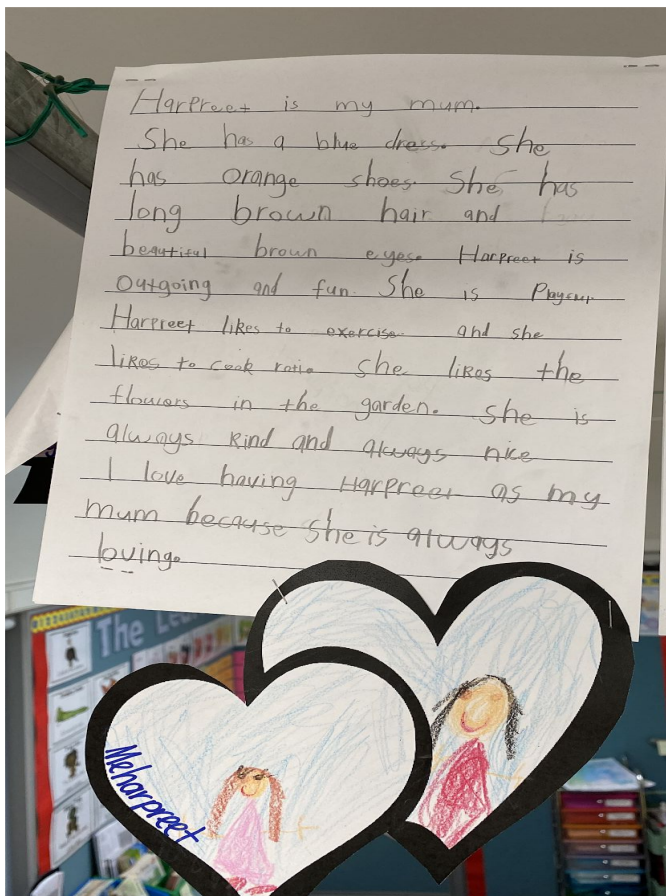 Harpreet is my mum.
She has a blue dress. She
has orange shoes. She has
long brown hair and
beautiful brown eyes. Harpreet is
outgoing and fun. She is
Harpreet likes to exercise and she
likes to cook roti. She likes the
flowers in the garden. She is
always kind and always nice
I love having Harpreet as my
mum because she is always
loving.
The
Meharpreet